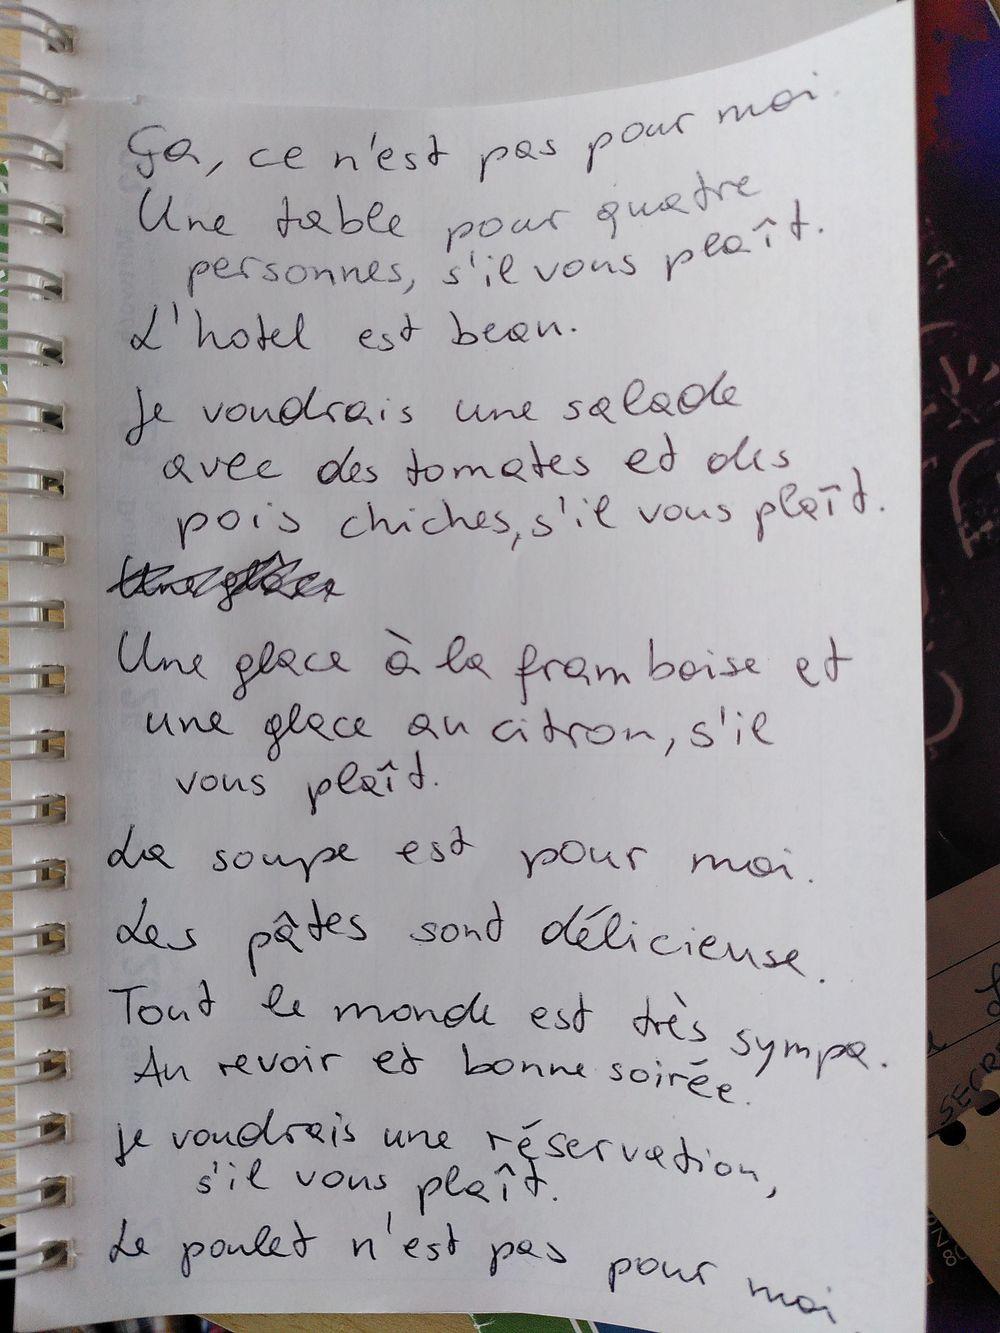 Ça, ce n'est pas pour moi.
Une table pour quatre
personnes, s'il vous plaît.
L'hotel est beau.
Je voudrais une salade
avec des tomates et des
pois chiches, s'il vous plaît.
Une glace à la framboise et
une glace au citron, s'il
vous plaît.
La soupe est pour moi.
Les pâtes sont délicieuse.
Tout le monde est très sympa.
Au revoir et bonne soirée.
Je voudrais une réservation,
s'il vous plaît.
Le poulet n'est pas pour moi.